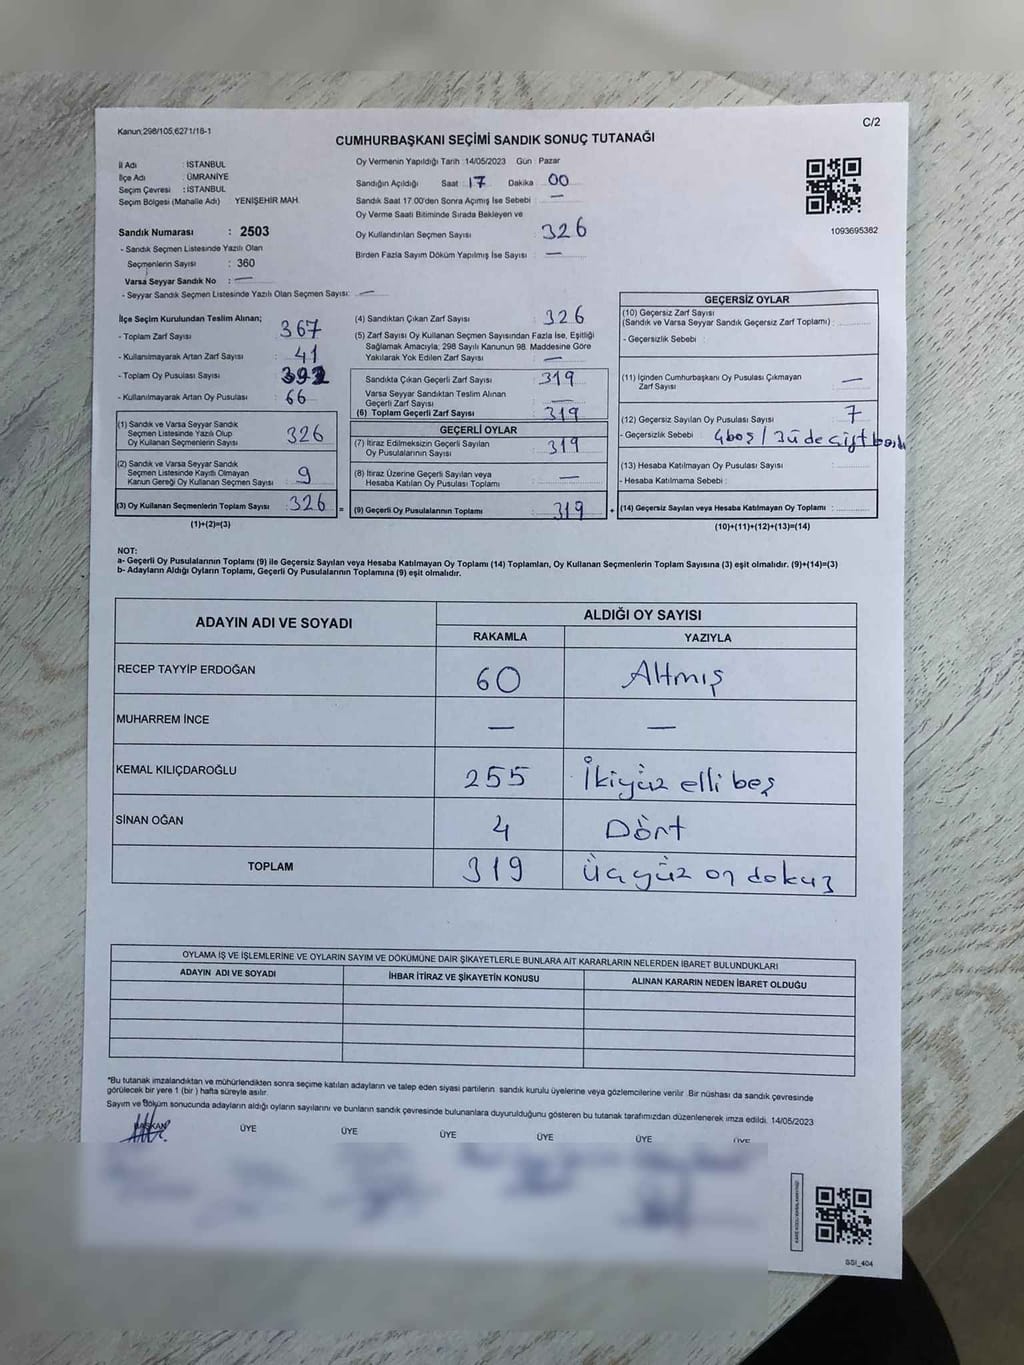 Kanun;298/105,6271/18-1
C/2
CUMHURBAŞKANI SEÇİMİ SANDIK SONUÇ TUTANAĞI
İl Adı : İSTANBUL
İlçe Adı : ÜMRANİYE
Seçim Çevresi : İSTANBUL
Seçim Bölgesi (Mahalle Adı) YENİŞEHİR MAH.
Oy Vermenin Yapıldığı Tarih :14/05/2023 Gün : Pazar
Sandığın Açıldığı Saat : 17 Dakika : 00
Sandık Saat 17.00'den Sonra Açımış İse Sebebi : —
Oy Verme Saati Bitiminde Sırada Bekleyen ve
Oy Kullandırılan Seçmen Sayısı : 326
Birden Fazla Sayım Döküm Yapılmış İse Sayısı : —
1093695382
Sandık Numarası : 2503
- Sandık Seçmen Listesinde Yazılı Olan
Seçmenlerin Sayısı : 360
Varsa Seyyar Sandık No : —
- Seyyar Sandık Seçmen Listesinde Yazılı Olan Seçmen Sayısı: —
İlçe Seçim Kurulundan Teslim Alınan;
- Toplam Zarf Sayısı : 367
- Kullanılmayarak Artan Zarf Sayısı : 41
- Toplam Oy Pusulası Sayısı : 392
- Kullanılmayarak Artan Oy Pusulası : 66
(1) Sandık ve Varsa Seyyar Sandık
Seçmen Listesinde Yazılı Olup
Oy Kullanan Seçmenlerin Sayısı : 326
(2) Sandık ve Varsa Seyyar Sandık
Seçmen Listesinde Kayıtlı Olmayan
Kanun Gereği Oy Kullanan Seçmen Sayısı : 9
(3) Oy Kullanan Seçmenlerin Toplam Sayısı : 326 =
(1)+(2)=(3)
(4) Sandıktan Çıkan Zarf Sayısı : 326
(5) Zarf Sayısı Oy Kullanan Seçmen Sayısından Fazla İse, Eşitliği
Sağlamak Amacıyla; 298 Sayılı Kanunun 98. Maddesine Göre
Yakılarak Yok Edilen Zarf Sayısı : —
Sandıkta Çıkan Geçerli Zarf Sayısı : 319
Varsa Seyyar Sandıktan Teslim Alınan
Geçerli Zarf Sayısı : —
(6) Toplam Geçerli Zarf Sayısı : 319
GEÇERLİ OYLAR
(7) İtiraz Edilmeksizin Geçerli Sayılan
Oy Pusulalarının Sayısı : 319
(8) İtiraz Üzerine Geçerli Sayılan veya
Hesaba Katılan Oy Pusulası Toplamı : —
(9) Geçerli Oy Pusulalarının Toplamı : 319 +
GEÇERSİZ OYLAR
(10) Geçersiz Zarf Sayısı
(Sandık ve Varsa Seyyar Sandık Geçersiz Zarf Toplamı) :
- Geçersizlik Sebebi :
(11) İçinden Cumhurbaşkanı Oy Pusulası Çıkmayan
Zarf Sayısı : —
(12) Geçersiz Sayılan Oy Pusulası Sayısı : 7
- Geçersizlik Sebebi : 4 boş / 3ü de çift baskı
(13) Hesaba Katılmayan Oy Pusulası Sayısı :
- Hesaba Katılmama Sebebi :
(14) Geçersiz Sayılan veya Hesaba Katılmayan Oy Toplamı :
(10)+(11)+(12)+(13)=(14)
NOT:
a- Geçerli Oy Pusulalarının Toplamı (9) ile Geçersiz Sayılan veya Hesaba Katılmayan Oy Toplamı (14) Toplamları, Oy Kullanan Seçmenlerin Toplam Sayısına (3) eşit olmalıdır. (9)+(14)=(3)
b- Adayların Aldığı Oyların Toplamı, Geçerli Oy Pusulalarının Toplamına (9) eşit olmalıdır.
ADAYIN ADI VE SOYADI ALDIĞI OY SAYISI
RAKAMLA YAZIYLA
RECEP TAYYİP ERDOĞAN 60 Altmış
MUHARREM İNCE — —
KEMAL KILIÇDAROĞLU 255 İkiyüz elli beş
SİNAN OĞAN 4 Dört
TOPLAM 319 Üçyüz on dokuz
OYLAMA İŞ VE İŞLEMLERİNE VE OYLARIN SAYIM VE DÖKÜMÜNE DAİR ŞİKAYETLERLE BUNLARA AİT KARARLARIN NELERDEN İBARET BULUNDUKLARI
ADAYIN ADI VE SOYADI İHBAR İTİRAZ VE ŞİKAYETİN KONUSU ALINAN KARARIN NEDEN İBARET OLDUĞU
*Bu tutanak imzalandıktan ve mühürlendikten sonra seçime katılan adayların ve talep eden siyasi partilerin sandık kurulu üyelerine veya gözlemcilerine verilir. Bir nüshası da sandık çevresinde
görülecek bir yere 1 (bir ) hafta süreyle asılır.
Sayım ve Döküm sonucunda adayların aldığı oyların sayılarını ve bunların sandık çevresinde bulunanlara duyurulduğunu gösteren bu tutanak tarafımızdan düzenlenerek imza edildi. 14/05/2023
BAŞKAN ÜYE ÜYE ÜYE ÜYE ÜYE ÜYE
SSI_404